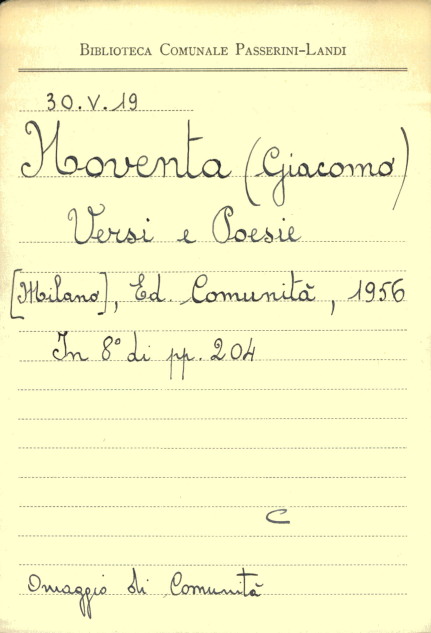 BIBLIOTECA COMUNALE PASSERINI-LANDI
30.V.19
Noventa (Giacomo)
Versi e Poesie
[Milano], Ed. Comunità, 1956
In 8° di pp. 204
C
Omaggio di Comunità